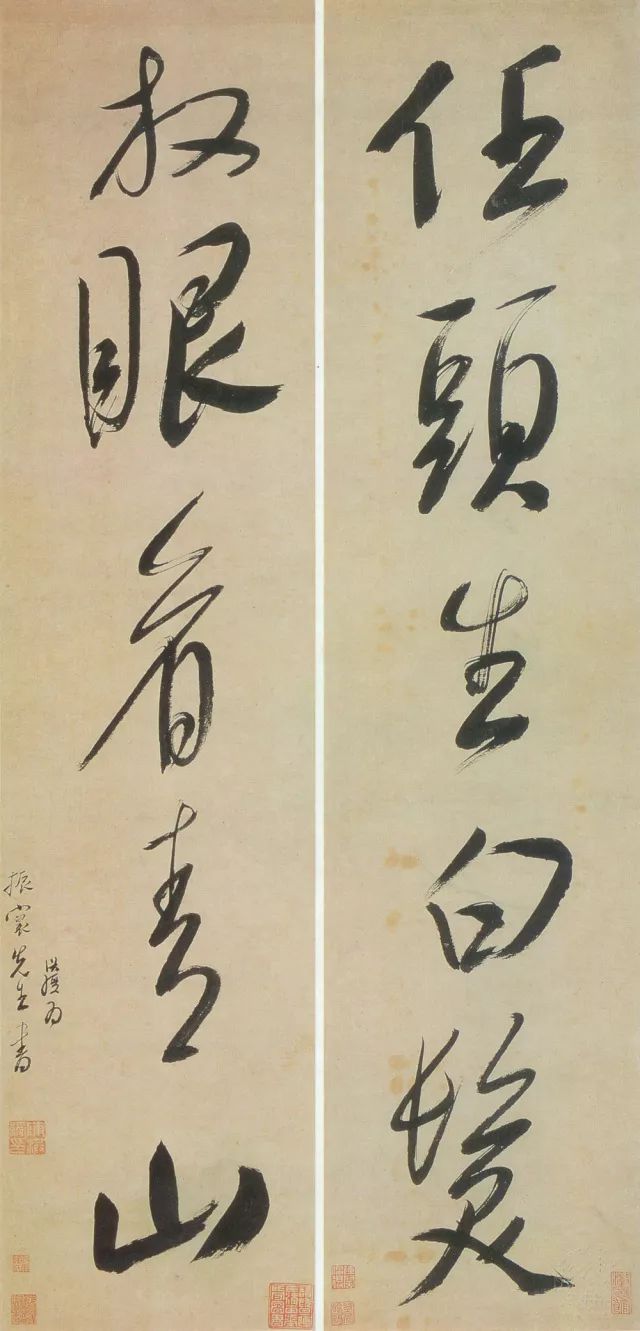 任頭生白髮
放眼看青山
為
振裳先生書